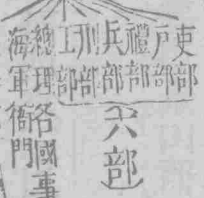 吏部
戶部
禮部
兵部
刑部
工部
六部
總理各國事
海軍衙門